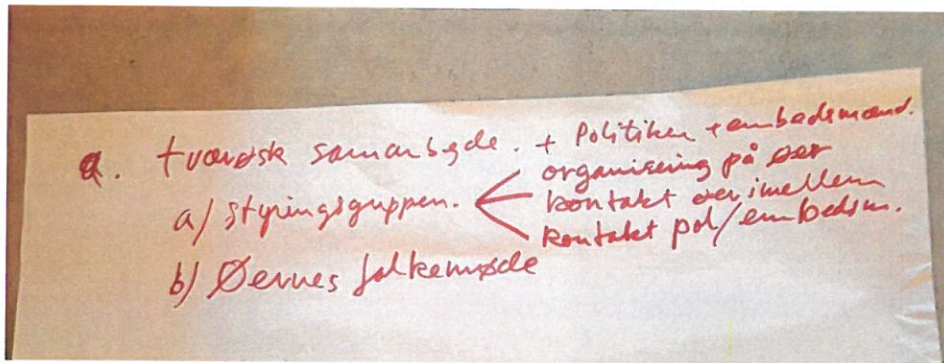 a. tværøsk samarbejde. + Politiker + embedsmænd.
a/ styringsgruppen. < organisering på øer
kontakt øer imellem
kontakt pol/embedsm.
b) Øernes folkemøde